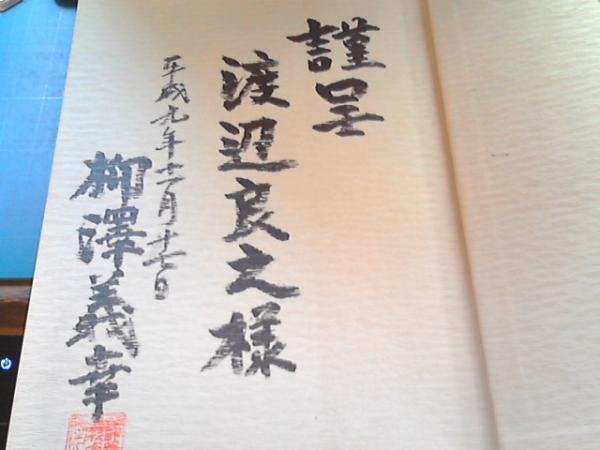 謹呈
渡辺良之様
平成九年十一月十七日
柳澤義幸